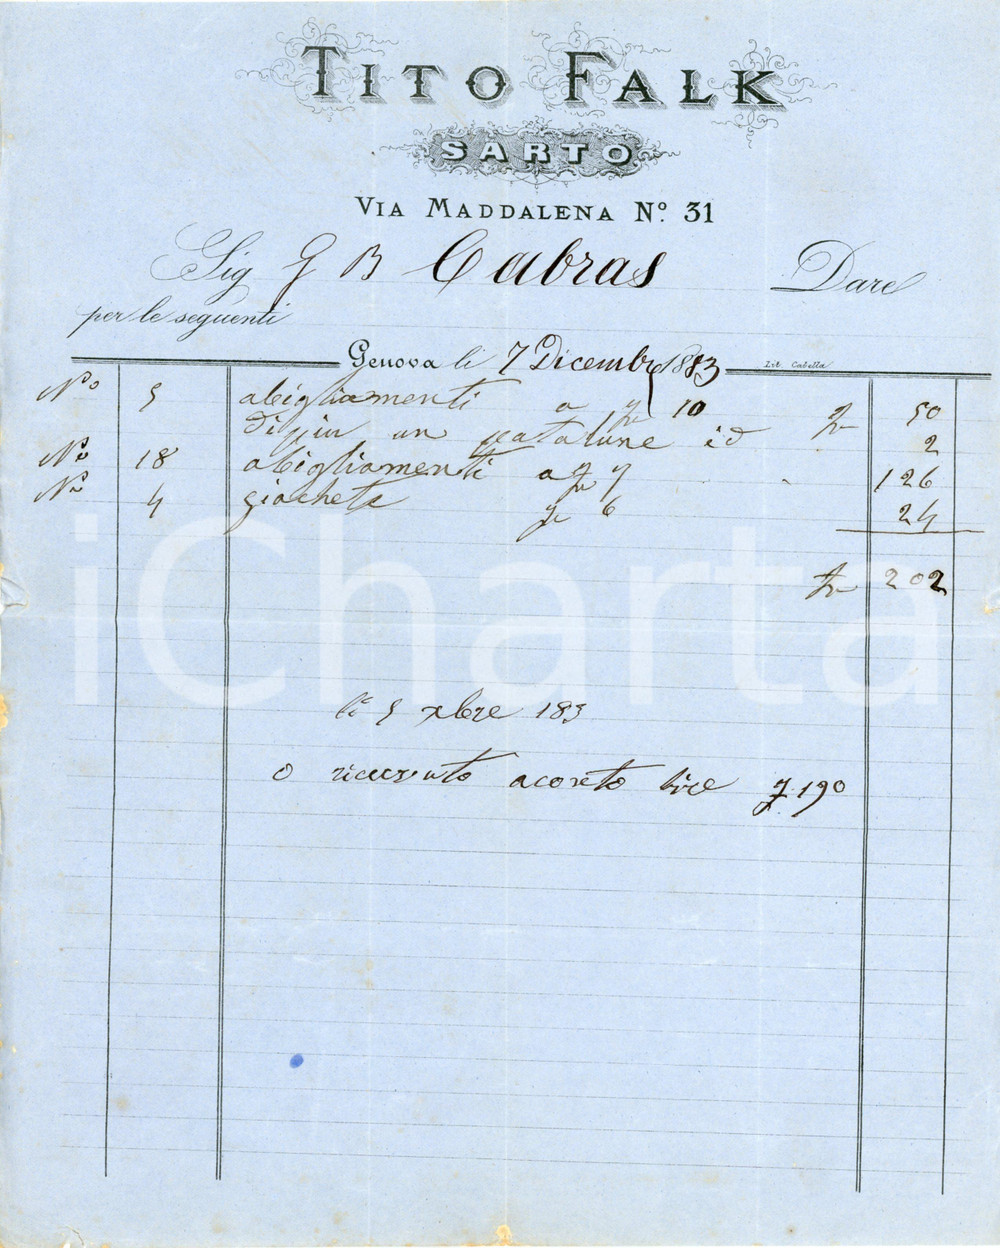 TITO FALK
SARTO
VIA MADDALENA Nº. 31
Sig G B Cabras Dare
per le seguenti
Genova li 7 Dicembre 1883
Lit. Cabella
Nº 5 abigliamenti a 10 50
di piu un patalune id 2
Nº 18 abigliamenti a 7 126
Nº 4 giacheta 6 24
202
li 5 xbre 183
o ricevuto aconto lire 190
iCharta